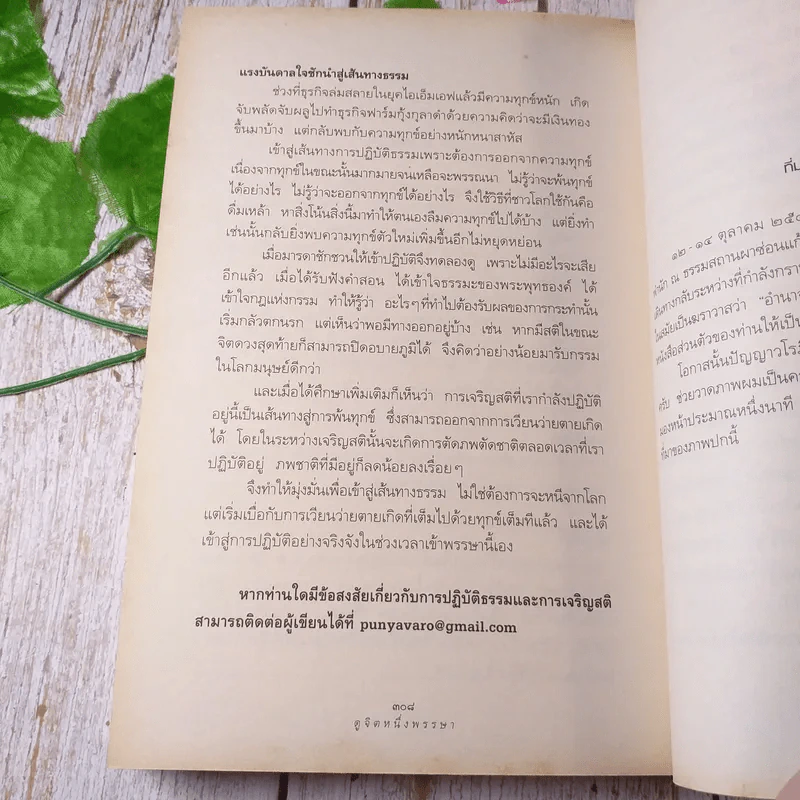 แรงบันดาลใจชักนำสู่เส้นทางธรรม
ช่วงที่ธุรกิจล่มสลายในยุคไอเอ็มเอฟแล้วมีความทุกข์หนัก เกิด
จับพลัดจับผลูไปทำธุรกิจฟาร์มกุ้งกุลาดำด้วยความคิดว่าจะมีเงินทอง
ขึ้นมาบ้าง แต่กลับพบกับความทุกข์อย่างหนักหนาสาหัส
เข้าสู่เส้นทางการปฏิบัติธรรมเพราะต้องการออกจากความทุกข์
เนื่องจากทุกข์ในขณะนั้นมากมายจนเหลือจะพรรณนา ไม่รู้ว่าจะพ้นทุกข์
ได้อย่างไร ไม่รู้ว่าจะออกจากทุกข์ได้อย่างไร จึงใช้วิธีที่ชาวโลกใช้กันคือ
ดื่มเหล้า หาสิ่งโน้นสิ่งนี้มาทำให้ตนเองลืมความทุกข์ไปได้บ้าง แต่ยิ่งทำ
เช่นนั้นกลับยิ่งพบความทุกข์ตัวใหม่เพิ่มขึ้นอีกไม่หยุดหย่อน
เมื่อมารดาชักชวนให้เข้าปฏิบัติจึงทดลองดู เพราะไม่มีอะไรจะเสีย
อีกแล้ว เมื่อได้รับฟังคำสอน ได้เข้าใจธรรมะของพระพุทธองค์ ได้
เข้าใจกฎแห่งกรรม ทำให้รู้ว่า อะไรๆที่ทำไปต้องรับผลของการกระทำนั้น
เริ่มกลัวตกนรก แต่เห็นว่าพอมีทางออกอยู่บ้าง เช่น หากมีสติในขณะ
จิตดวงสุดท้ายก็สามารถปิดอบายภูมิได้ จึงคิดว่าอย่างน้อยมารับกรรม
ในโลกมนุษย์ดีกว่า
และเมื่อได้ศึกษาเพิ่มเติมก็เห็นว่า การเจริญสติที่เรากำลังปฏิบัติ
อยู่นี้เป็นเส้นทางสู่การพ้นทุกข์ ซึ่งสามารถออกจากการเวียนว่ายตายเกิด
ได้ โดยในระหว่างเจริญสตินั้นจะเกิดการตัดภพตัดชาติตลอดเวลาที่เรา
ปฏิบัติอยู่ ภพชาติที่มีอยู่ก็ลดน้อยลงเรื่อยๆ
จึงทำให้มุ่งมั่นเพื่อเข้าสู่เส้นทางธรรม ไม่ใช่ต้องการจะหนีจากโลก
แต่เริ่มเบื่อกับการเวียนว่ายตายเกิดที่เต็มไปด้วยทุกข์เต็มทีแล้ว และได้
เข้าสู่การปฏิบัติอย่างจริงจังในช่วงเวลาเข้าพรรษานี้เอง
หากท่านใดมีข้อสงสัยเกี่ยวกับการปฏิบัติธรรมและการเจริญสติ
สามารถติดต่อผู้เขียนได้ที่ punyavaro@gmail.com
๓๐๘
ดูจิตหนึ่งพรรษา
๑๒-๑๔ ตุลาคม
สำนัก ณ ธรรมสถานผาซ่อนแก้ว
เดินทางกลับระหว่างที่กำลังกราบ
ในสมัยเป็นฆราวาสว่า "อำนาจ
หนังสือส่วนตัวของท่านให้เป็น
โอกาสนั้นปัญญาวโร
ครับ ช่วยวาดภาพผมเป็น
มองหน้าประมาณหนึ่งนาที
ที่มาของภาพปกนี้